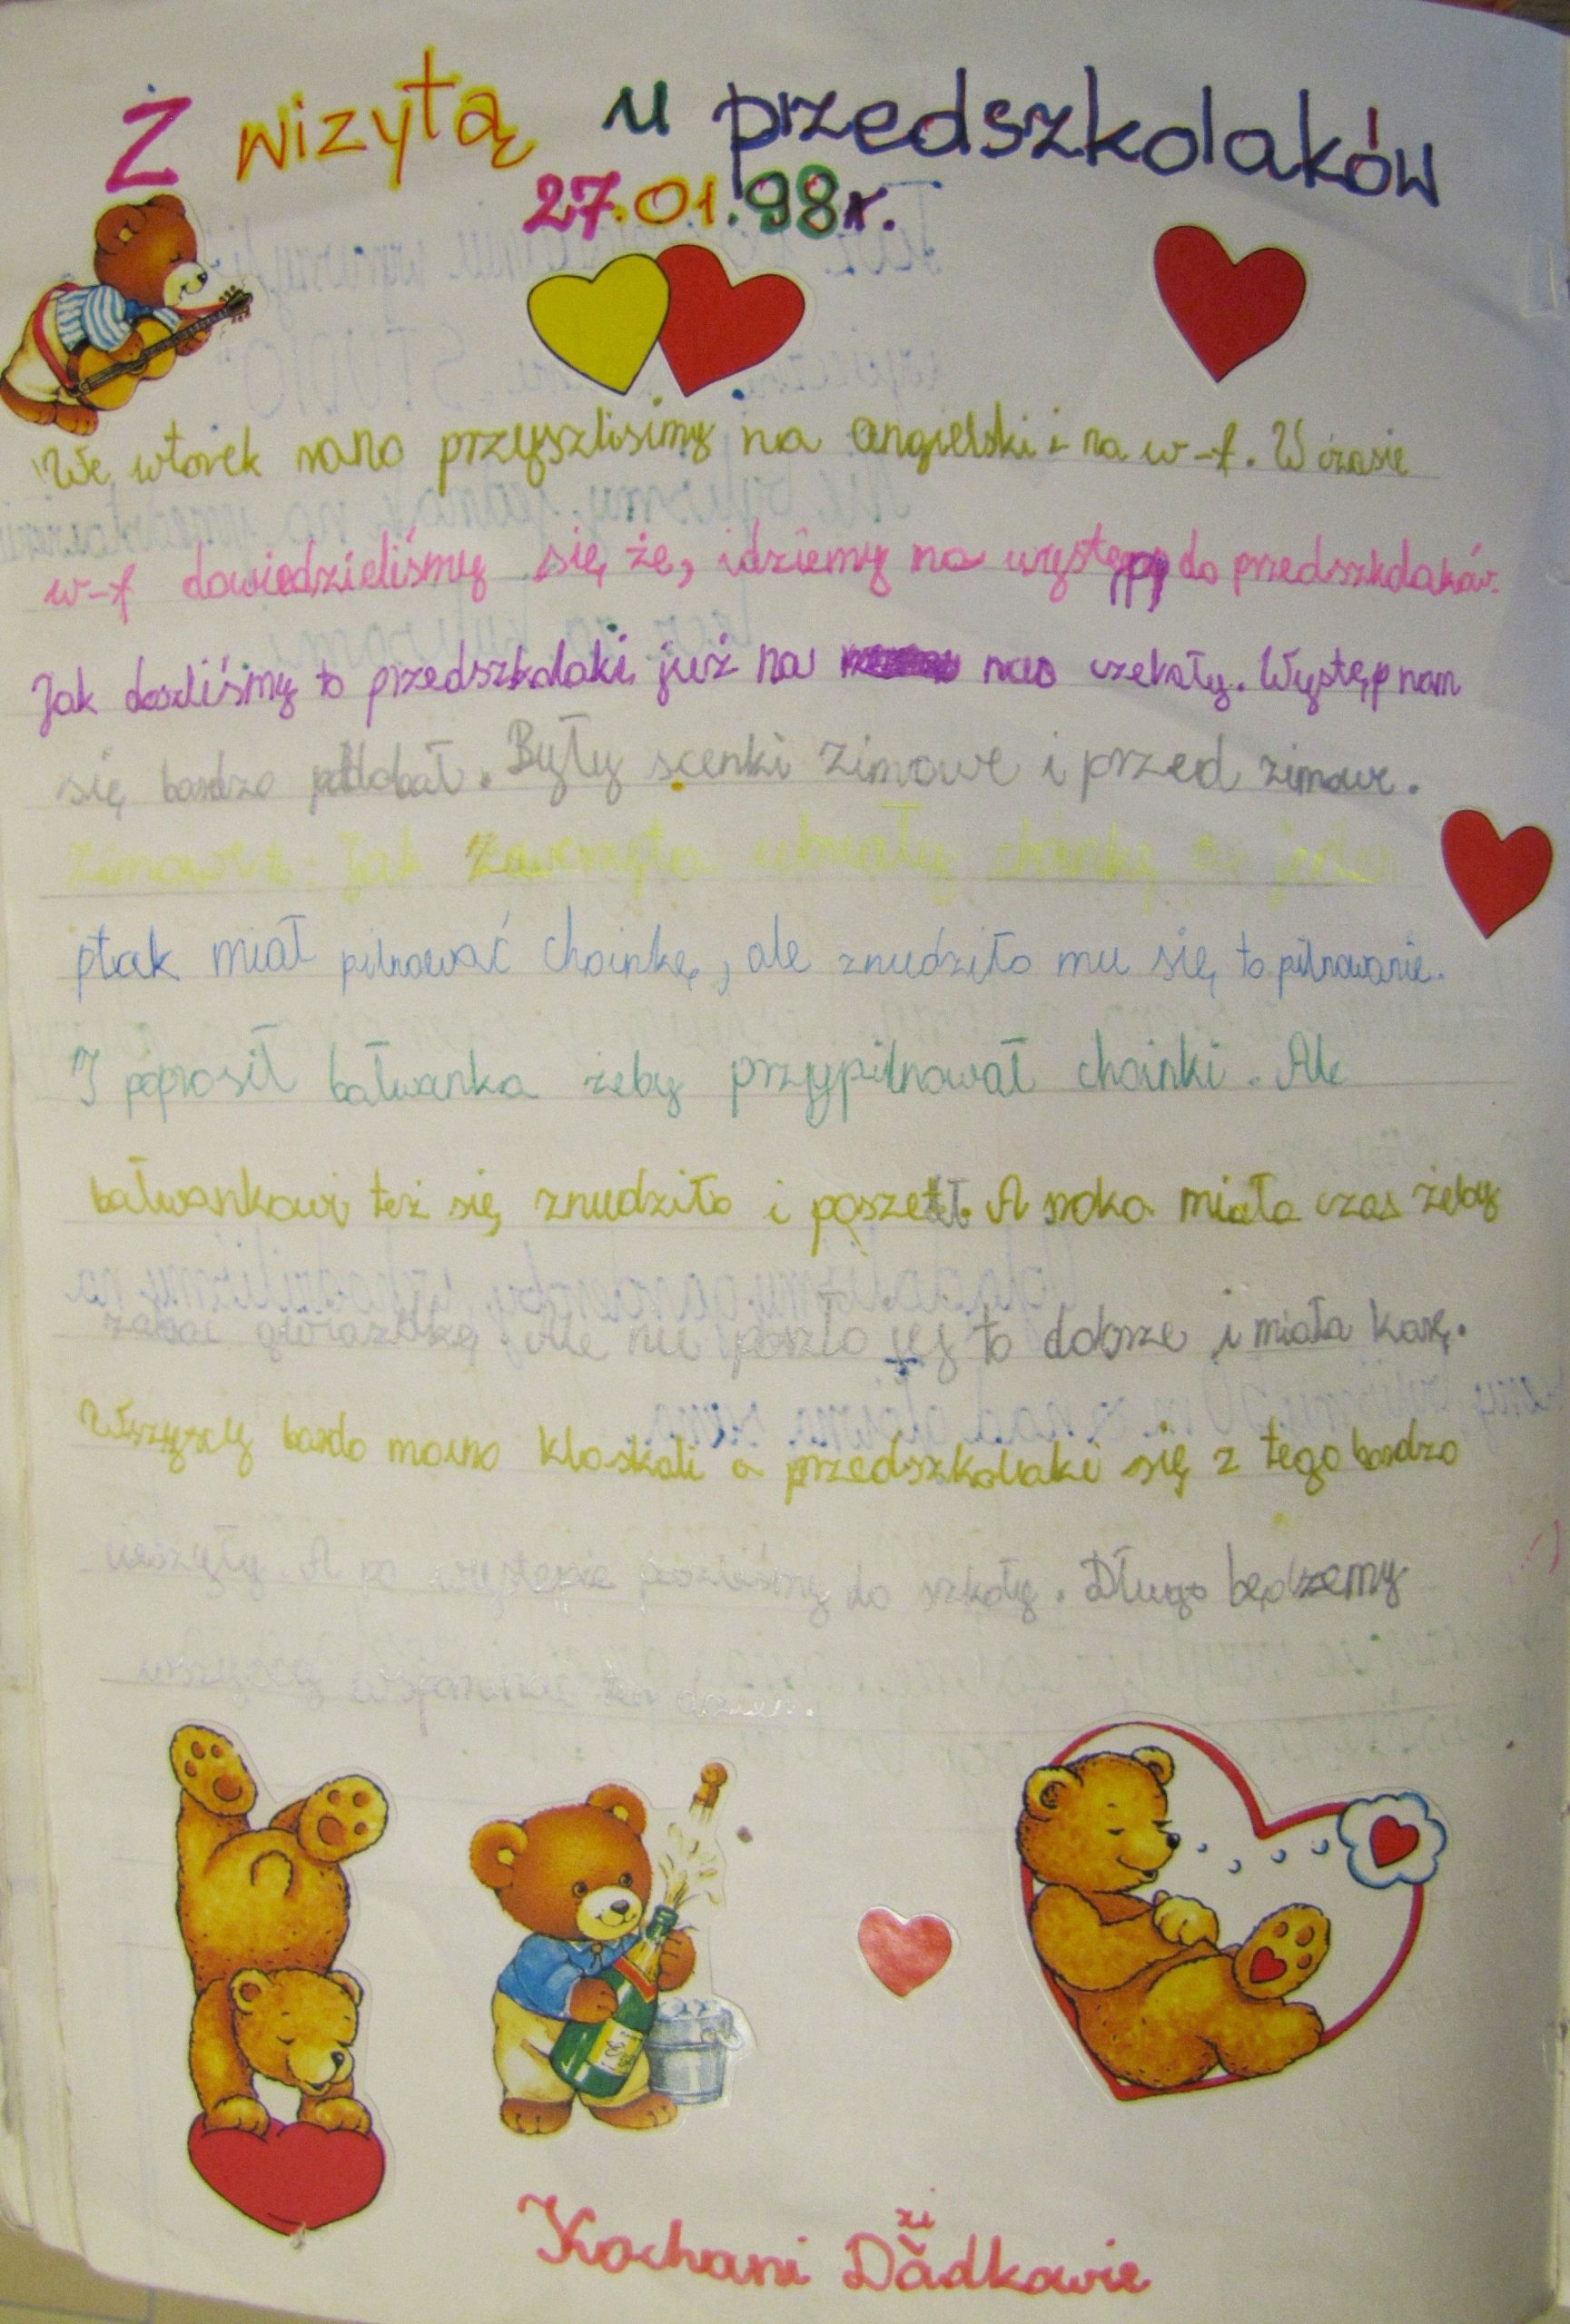 Z wizytą u przedszkolaków
27.01.98r.
We wtorek rano przyszlisimy na angielski i na w-f. W czasie
w-f dowiedzieliśmy się że, idziemy na występy do przedszkolaków.
Jak doszliśmy to przedszkolaki już na nas czekały. Występ nam
się bardzo podobał. Były scenki zimowe i przed zimowe.
Zimowe: Jak zwierzęta ubrały choinkę a jeden
ptak miał pilnować choinkę, ale znudziło mu się to pilnowanie.
I poprosił bałwanka żeby przypilnował choinki. Ale
bałwankowi też się znudziło i poszedł. A sroka miała czas żeby
zabrać gwiazdkę. Ale nie poszło jej to dobrze i miała karę.
Wszyscy bardo mocno kloskali a przedszkolaki się z tego bardzo
cieszyły. A po występie poszliśmy do szkoły. Długo będzemy
wszyscy wspominać ten dzień.
Kochani Dziadkowie